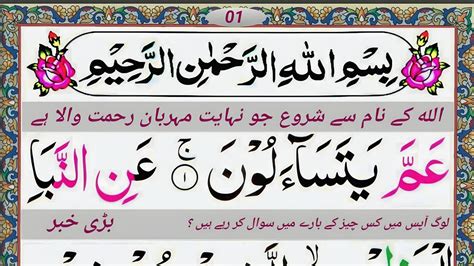 01
بِسْمِ اللهِ الرَّحْمٰنِ الرَّحِيْمِ
الله کے نام سے شروع جو نہایت مہربان رحمت والا ہے
عَمَّ يَتَسَآءَلُوْنَ ۚ ۱ عَنِ النَّبَاِ
لوگ آپس میں کس چیز کے بارے میں سوال کر رہے ہیں ؟ بڑی خبر